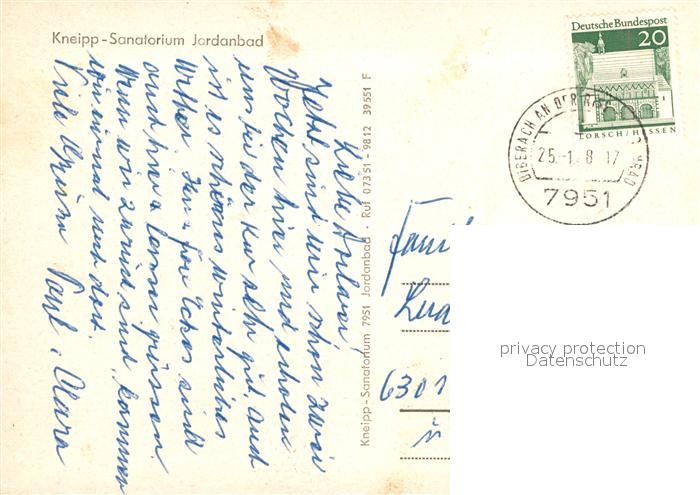 Kneipp-Sanatorium Jordanbad
Liebe
Jetzt sind wir schon zwei
Wochen hier, und erholen
uns bei der Kur sehr gut, auch
ist es schönes winterliches
Wetter. Frau Eckas sind
auch hier u. lassen grüssen.
Wenn wir zurück sind, kommen
wir mal zu dort.
Viele Grüsse Paul u. Clara
Kneipp-Sanatorium 7951 Jordanbad · Ruf 07351-9812 39551 F
Deutsche Bundespost
20
LORSCH/HESSEN
BIBERACH AN DER
25.-1. 8 17
7951
Fam
6301
in
privacy protection
Datenschutz